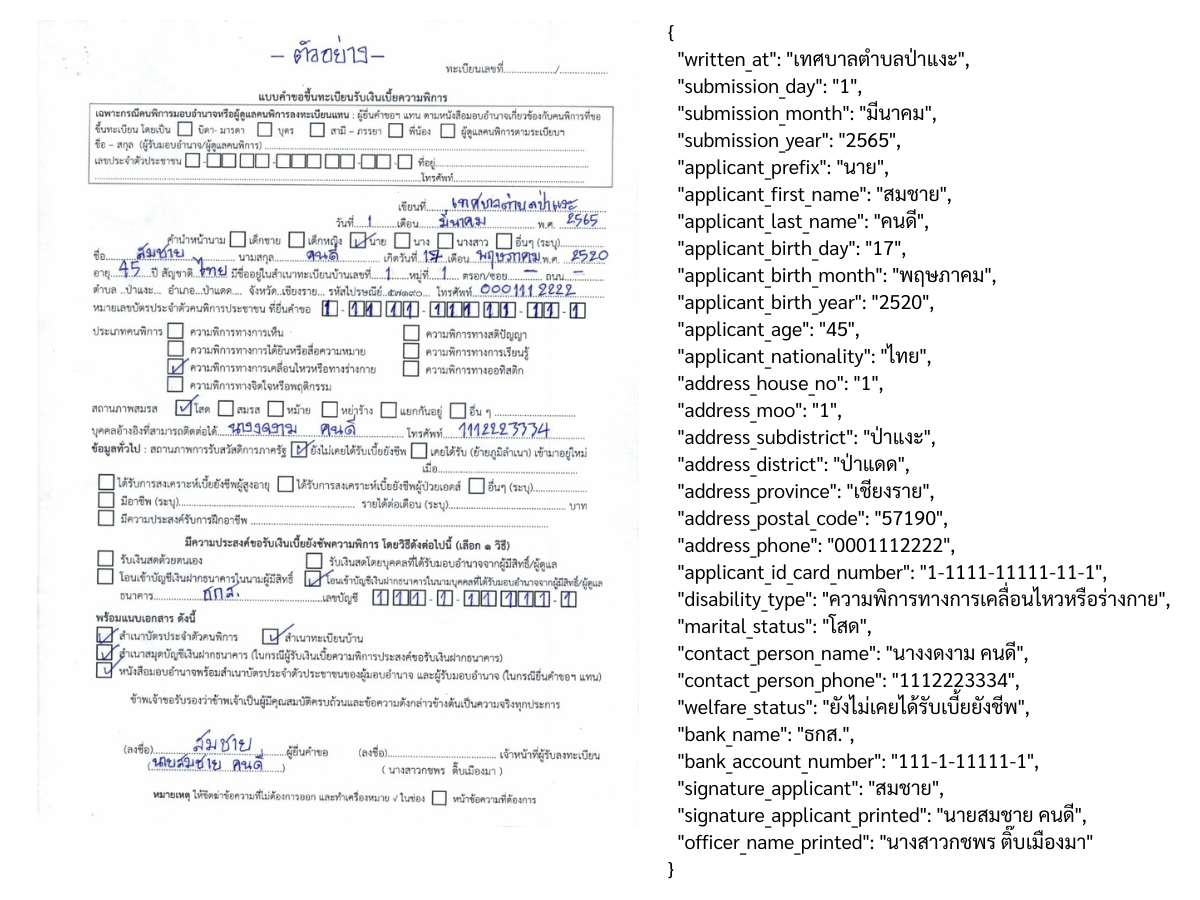 - ตัวอย่าง -
ทะเบียนเลขที่................/................
แบบคำขอขึ้นทะเบียนรับเงินเบี้ยความพิการ
เฉพาะกรณีคนพิการมอบอำนาจหรือผู้ดูแลคนพิการลงทะเบียนแทน : ผู้ยื่นคำขอฯ แทน ตามหนังสือมอบอำนาจเกี่ยวข้องกับคนพิการที่ขอ
ขึ้นทะเบียน โดยเป็น บิดา- มารดา บุตร สามี – ภรรยา พี่น้อง ผู้ดูแลคนพิการตามระเบียบฯ
ชื่อ – สกุล (ผู้รับมอบอำนาจ/ผู้ดูแลคนพิการ)
เลขประจำตัวประชาชน ที่อยู่
โทรศัพท์
เขียนที่ เทศบาลตำบลป่าแงะ
วันที่ 1 เดือน มีนาคม พ.ศ. 2565
คำนำหน้านาม เด็กชาย เด็กหญิง นาย นาง นางสาว อื่นๆ (ระบุ)
ชื่อ สมชาย นามสกุล คนดี เกิดวันที่ 17 เดือน พฤษภาคม พ.ศ. 2520
อายุ 45 ปี สัญชาติ ไทย มีชื่ออยู่ในสำเนาทะเบียนบ้านเลขที่ 1 หมู่ที่ 1 ตรอก/ซอย – ถนน –
ตำบล ..ป่าแงะ... อำเภอ...ป่าแดด.... จังหวัด..เชียงราย... รหัสไปรษณีย์..๕๗๑๙๐.. โทรศัพท์ 0001112222
หมายเลขบัตรประจำตัวคนพิการประชาชน ที่ยื่นคำขอ 1 - 1111 - 11111 - 11 - 1
ประเภทคนพิการ ความพิการทางการเห็น ความพิการทางสติปัญญา
ความพิการทางการได้ยินหรือสื่อความหมาย ความพิการทางการเรียนรู้
ความพิการทางการเคลื่อนไหวหรือทางร่างกาย ความพิการทางออทิสติก
ความพิการทางจิตใจหรือพฤติกรรม
สถานภาพสมรส โสด สมรส หม้าย หย่าร้าง แยกกันอยู่ อื่น ๆ
บุคคลอ้างอิงที่สามารถติดต่อได้ นางงดงาม คนดี โทรศัพท์ 1112223334
ข้อมูลทั่วไป : สถานภาพการรับสวัสดิการภาครัฐ ยังไม่เคยได้รับเบี้ยยังชีพ เคยได้รับ (ย้ายภูมิลำเนา) เข้ามาอยู่ใหม่
เมื่อ
ได้รับการสงเคราะห์เบี้ยยังชีพผู้สูงอายุ ได้รับการสงเคราะห์เบี้ยยังชีพผู้ป่วยเอดส์ อื่นๆ (ระบุ)
มีอาชีพ (ระบุ) รายได้ต่อเดือน (ระบุ) บาท
มีความประสงค์รับการฝึกอาชีพ
มีความประสงค์ขอรับเงินเบี้ยยังชัพความพิการ โดยวิธีดังต่อไปนี้ (เลือก ๑ วิธี)
รับเงินสดด้วยตนเอง รับเงินสดโดยบุคคลที่ได้รับมอบอำนาจจากผู้มีสิทธิ/ผู้ดูแล
โอนเข้าบัญชีเงินฝากธนาคารในนามผู้มีสิทธิ์ โอนเข้าบัญชีเงินฝากธนาคารในนามบุคคลที่ได้รับมอบอำนาจจากผู้มีสิทธิ/ผู้ดูแล
ธนาคาร ธกส. เลขบัญชี 111 - 1 - 11111 - 1
พร้อมแนบเอกสาร ดังนี้
สำเนาบัตรประจำตัวคนพิการ สำเนาทะเบียนบ้าน
สำเนาสมุดบัญชีเงินฝากธนาคาร (ในกรณีผู้รับเงินเบี้ยความพิการประสงค์ขอรับเงินฝากธนาคาร)
หนังสือมอบอำนาจพร้อมสำเนาบัตรประจำตัวประชาชนของผู้มอบอำนาจ และผู้รับมอบอำนาจ (ในกรณียื่นคำขอฯ แทน)
ข้าพเจ้าขอรับรองว่าข้าพเจ้าเป็นผู้มีคุณสมบัติครบถ้วนและข้อความดังกล่าวข้างต้นเป็นความจริงทุกประการ
(ลงชื่อ) สมชาย ผู้ยื่นคำขอ (ลงชื่อ) เจ้าหน้าที่ผู้รับลงทะเบียน
(นายสมชาย คนดี) ( นางสาวกชพร ติ๊บเมืองมา )
หมายเหตุ ให้ขีดฆ่าข้อความที่ไม่ต้องการออก และทำเครื่องหมาย √ ในช่อง หน้าข้อความที่ต้องการ
{
"written_at": "เทศบาลตำบลป่าแงะ",
"submission_day": "1",
"submission_month": "มีนาคม",
"submission_year": "2565",
"applicant_prefix": "นาย",
"applicant_first_name": "สมชาย",
"applicant_last_name": "คนดี",
"applicant_birth_day": "17",
"applicant_birth_month": "พฤษภาคม",
"applicant_birth_year": "2520",
"applicant_age": "45",
"applicant_nationality": "ไทย",
"address_house_no": "1",
"address_moo": "1",
"address_subdistrict": "ป่าแงะ",
"address_district": "ป่าแดด",
"address_province": "เชียงราย",
"address_postal_code": "57190",
"address_phone": "0001112222",
"applicant_id_card_number": "1-1111-11111-11-1",
"disability_type": "ความพิการทางการเคลื่อนไหวหรือร่างกาย",
"marital_status": "โสด",
"contact_person_name": "นางงดงาม คนดี",
"contact_person_phone": "1112223334",
"welfare_status": "ยังไม่เคยได้รับเบี้ยยังชีพ",
"bank_name": "ธกส.",
"bank_account_number": "111-1-11111-1",
"signature_applicant": "สมชาย",
"signature_applicant_printed": "นายสมชาย คนดี",
"officer_name_printed": "นางสาวกชพร ติ๊บเมืองมา"
}